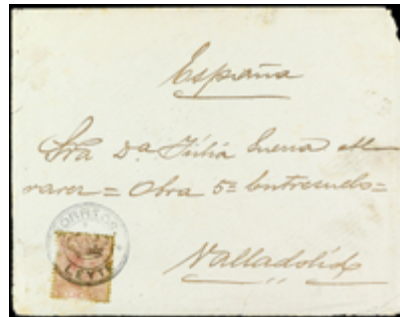 España
Sra Dª Júlia Guerra Al-
varez = Obra 5 = Entresuelo =
Valladolid
CORREOS
LEYTE